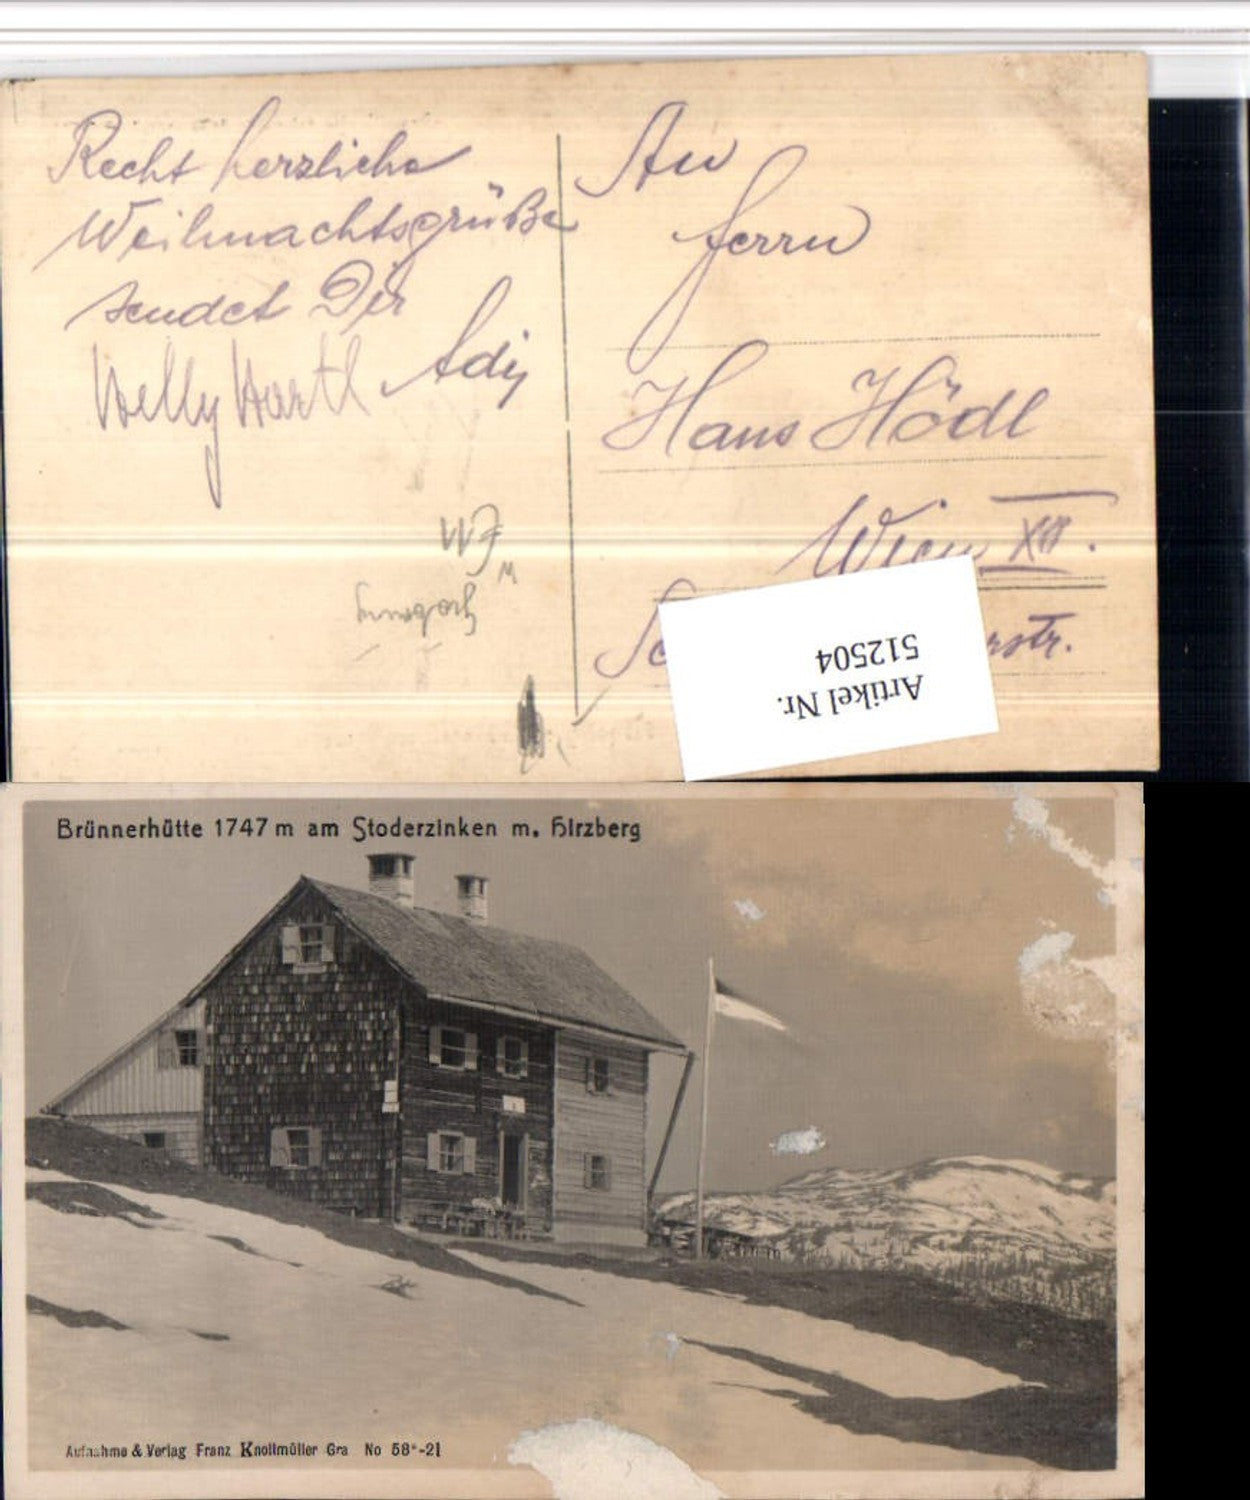 Recht herzliche
Weihnachtsgrüße
sendet Dir
Adij
Welly Hartl
An
Herrn
Hans Hödl
Wien XII.
rstr.
Artikel Nr.
512504
Brünnerhütte 1747 m am Stoderzinken m. Hirzberg
Aufnahme & Verlag Franz Knollmüller Gra No 58*-21